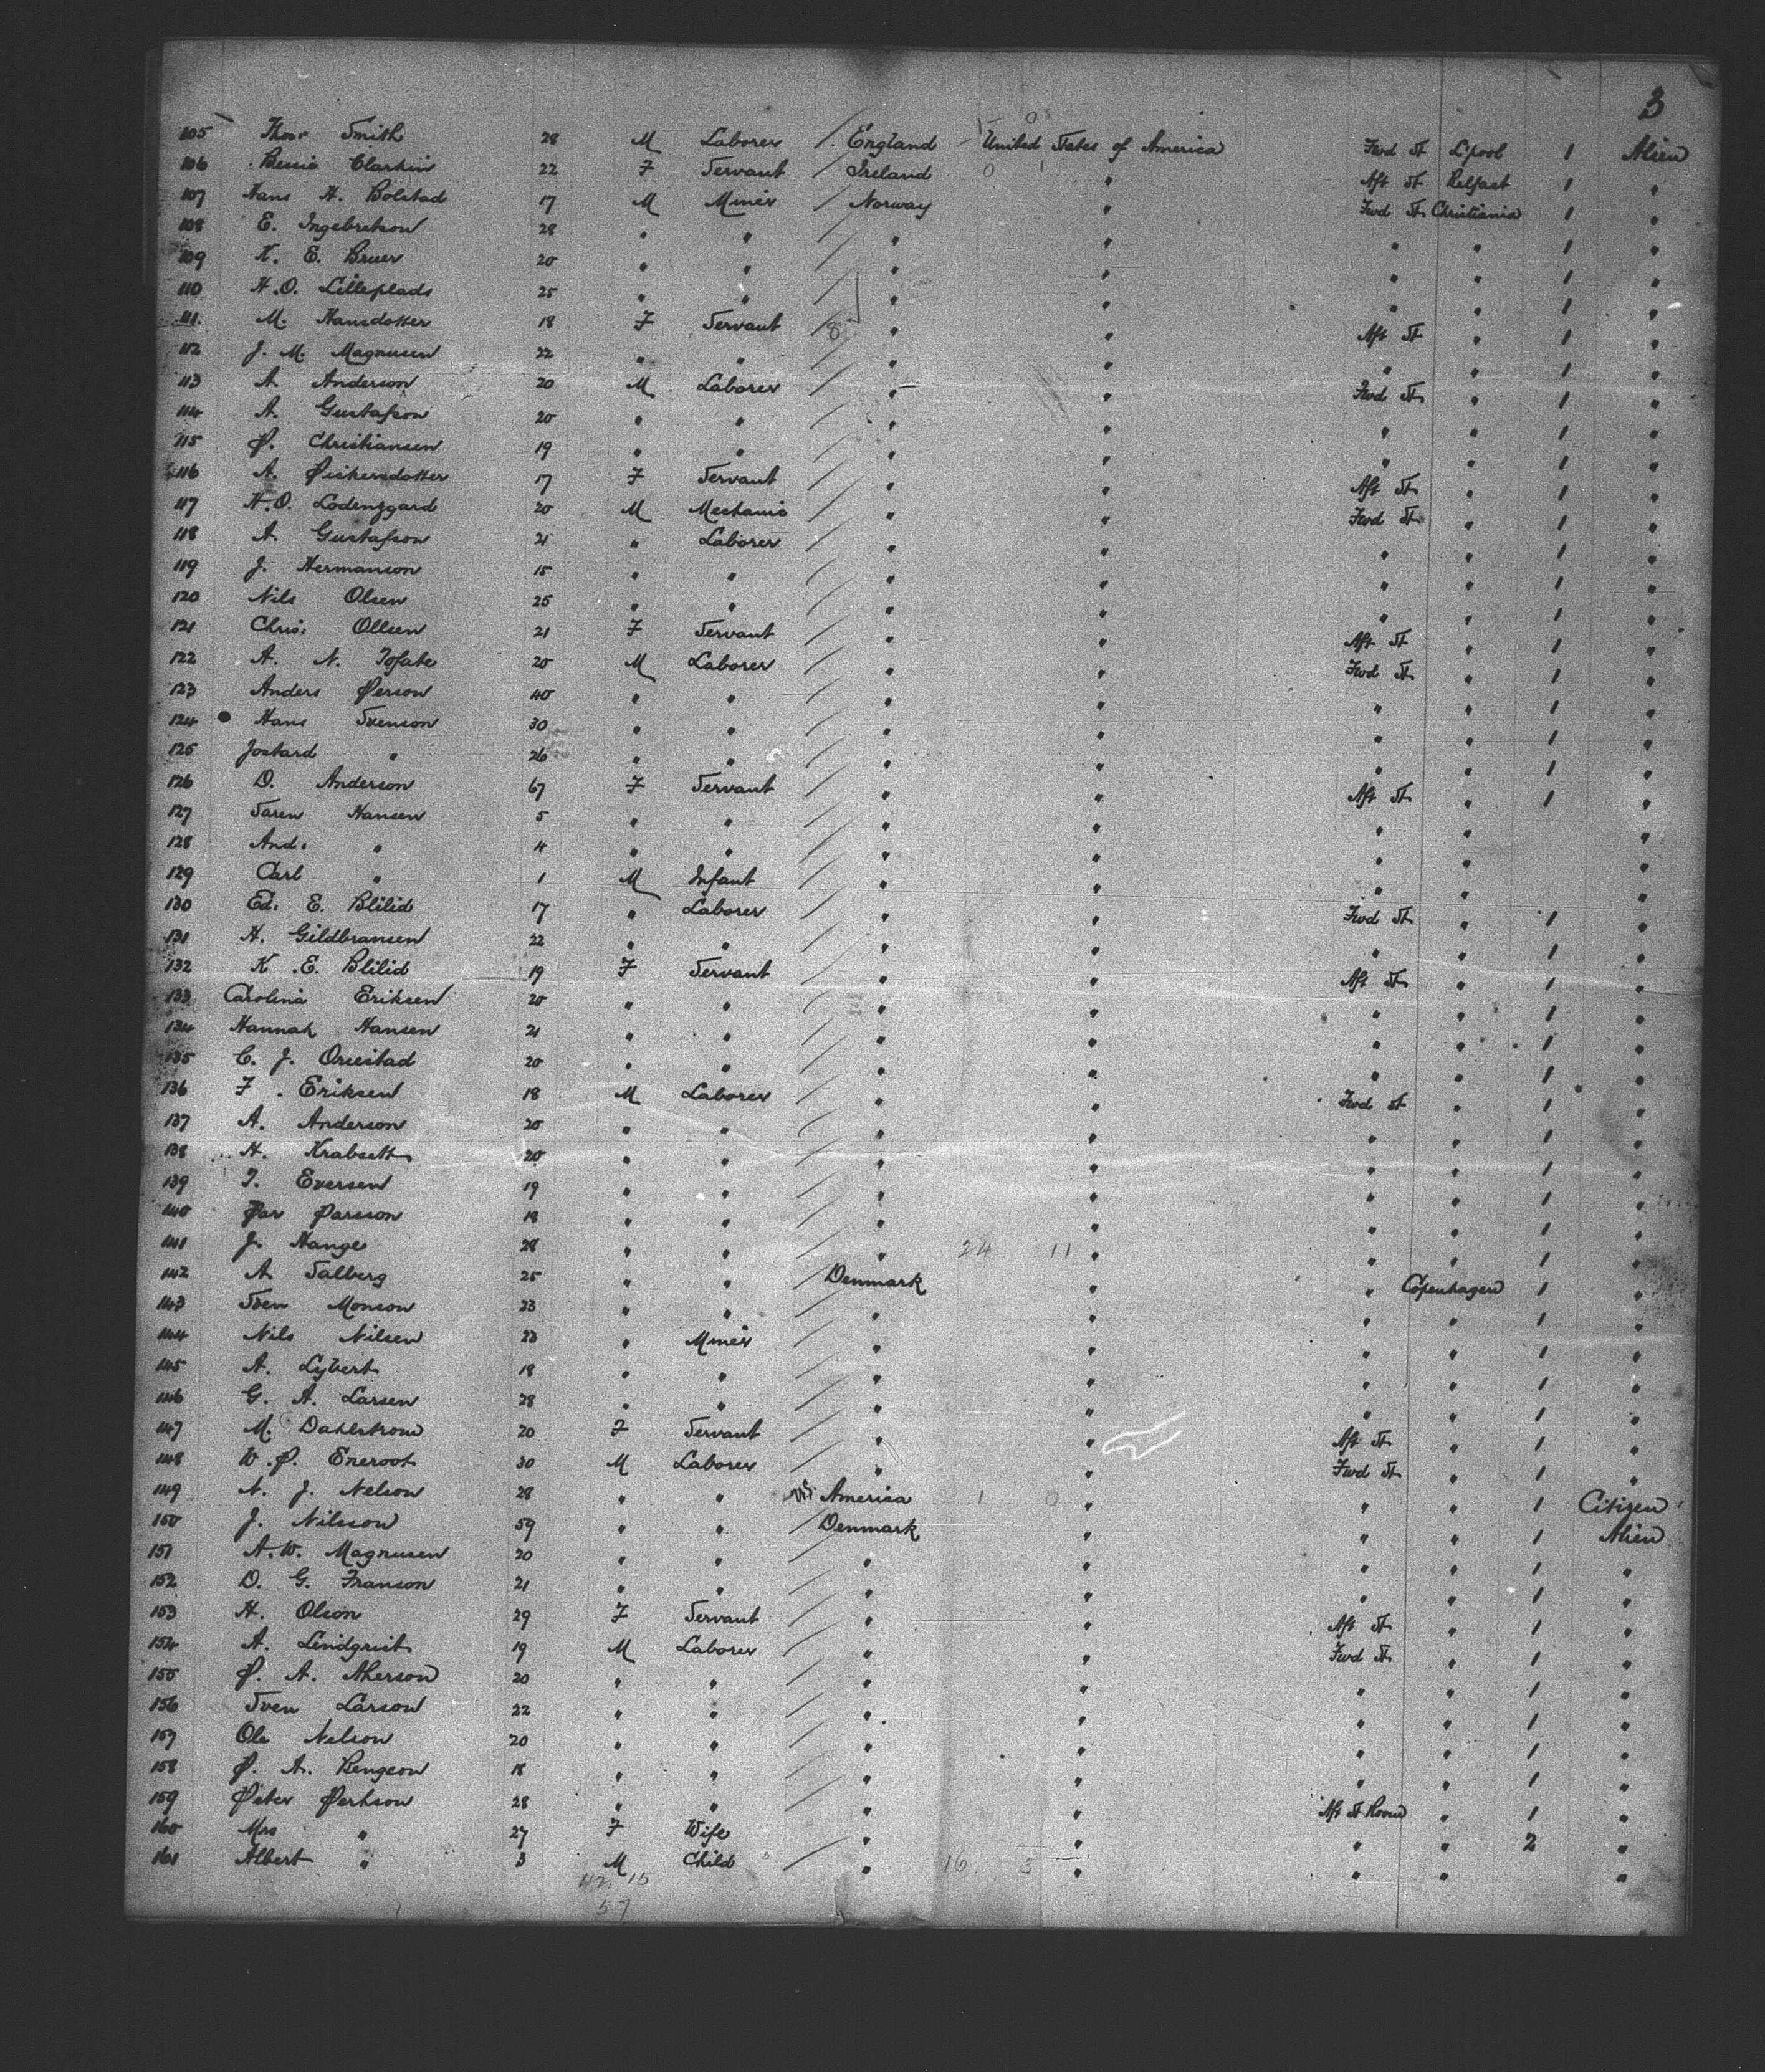 3
105 Thos Smith 28 M Laborer England United States of America Fwd St L'pool 1 Alien
106 Bessie Clarkin 22 F Servant Ireland 0 1 " Aft St Belfast 1 "
107 Hans H. Bolstad 17 M Miner Norway " Fwd St Christiania 1 "
108 E. Ingebretson 28 " " " " " " 1 "
109 K. E. Bruer 20 " " " " " " 1 "
110 H.O. Lilleplads 25 " " " " " " 1 "
111 M. Hansdotter 18 F Servant 8 " " Aft St " 1 "
112 J. M. Magnusen 22 " " " " " " 1 "
113 A Anderson 20 M Laborer " " Fwd St " 1 "
114 A. Gustafson 20 " " " " " " 1 "
115 P. Christiansen 19 " " " " " " 1 "
116 A. Pickersdotter 17 F Servant " " Aft St " 1 "
117 H.O. Lodenggard 20 M Mechanic " " Fwd St " 1 "
118 A. Gustafson 21 " Laborer " " " " 1 "
119 J. Hermanson 15 " " " " " " 1 "
120 Nils Olsen 25 " " " " " " 1 "
121 Chris. Ollsen 21 F Servant " " Aft St " 1 "
122 A. N. Tofate 20 M Laborer " " Fwd St " 1 "
123 Anders Person 40 " " " " " " 1 "
124 Hans Svenson 30 " " " " " " 1 "
125 Jostard " 26 " " " " " " 1 "
126 D. Anderson 67 F Servant " " Aft St " 1 "
127 Saren Hansen 5 " " " " " " "
128 And. " 4 " " " " " " "
129 Carl " 1 M Infant " " " " "
130 Ed. E. Blilid 17 " Laborer " " Fwd St " 1 "
131 H. Gildbransen 22 " " " " " " 1 "
132 K. E. Blilid 19 F Servant " " Aft St " 1 "
133 Carolina Eriksen 20 " " " " " " 1 "
134 Hannah Hansen 21 " " " " " " 1 "
135 C. J. Orustad 20 " " " " " " 1 "
136 F. Eriksen 18 M Laborer " " Fwd St " 1 "
137 A. Anderson 20 " " " " " " 1 "
138 H. Krabseth 20 " " " " " " 1 "
139 T. Eversen 19 " " " " " " 1 "
140 Par Parsson 18 " " " " " " 1 "
141 J. Hange 28 " " " 24 11 " " " 1 "
142 A Salberg 25 " " Denmark " " Copenhagen 1 "
143 Sven Monson 23 " " " " " " 1 "
144 Nils Nilsen 23 " Miner " " " " 1 "
145 A. Lybert 18 " " " " " " 1 "
146 G. A. Larsen 28 " " " " " " 1 "
147 M. Dahlstrom 20 F Servant " " Aft St " 1 "
148 W. P. Eneroot 30 M Laborer " " Fwd St " 1 "
149 N. J. Nelson 28 " " America 1 0 " " " 1 Citizen
150 J. Nilsson 59 " " Denmark " " " 1 Alien
151 A.W. Magnusen 20 " " " " " " 1 "
152 D. G. Franson 21 " " " " " " 1 "
153 H. Olson 29 F Servant " " Aft St " 1 "
154 A. Lindgrist 19 M Laborer " " Fwd St " 1 "
155 P. A. Aherson 20 " " " " " " 1 "
156 Sven Larson 22 " " " " " " 1 "
157 Ole Nelson 20 " " " " " " 1 "
158 P. A. Bengson 18 " " " " " " 1 "
159 Peter Perhson 28 " " " " Aft St Room " 1 "
160 Mrs " 27 F Wife " " " " 2 "
161 Albert " 3 M Child " 16 5 " " " "
42 15
57